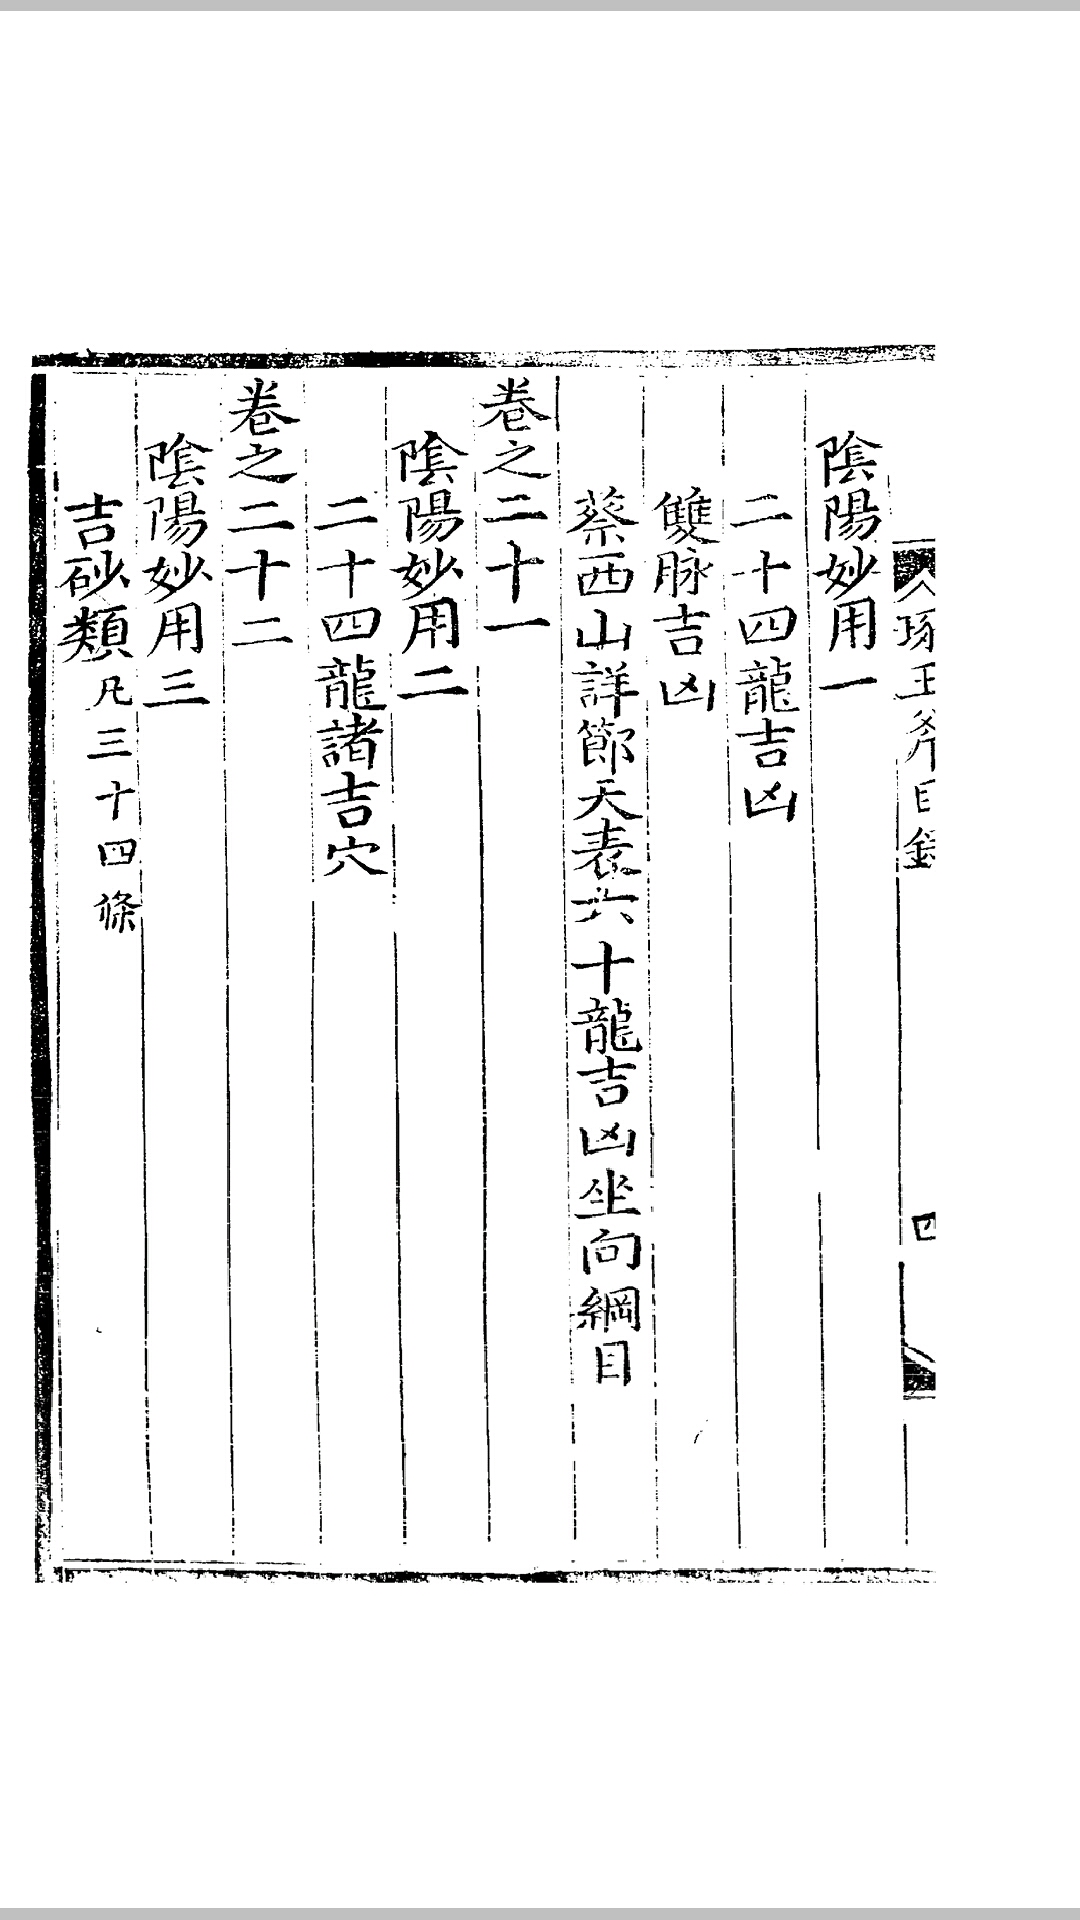 琢玉斧目錄
四
陰陽妙用一
二十四龍吉凶
雙脉吉凶
蔡西山詳節天表六十龍吉凶坐向綱目
卷之二十一
陰陽妙用二
二十四龍諸吉穴
卷之二十二
陰陽妙用三
吉砂類凡三十四條